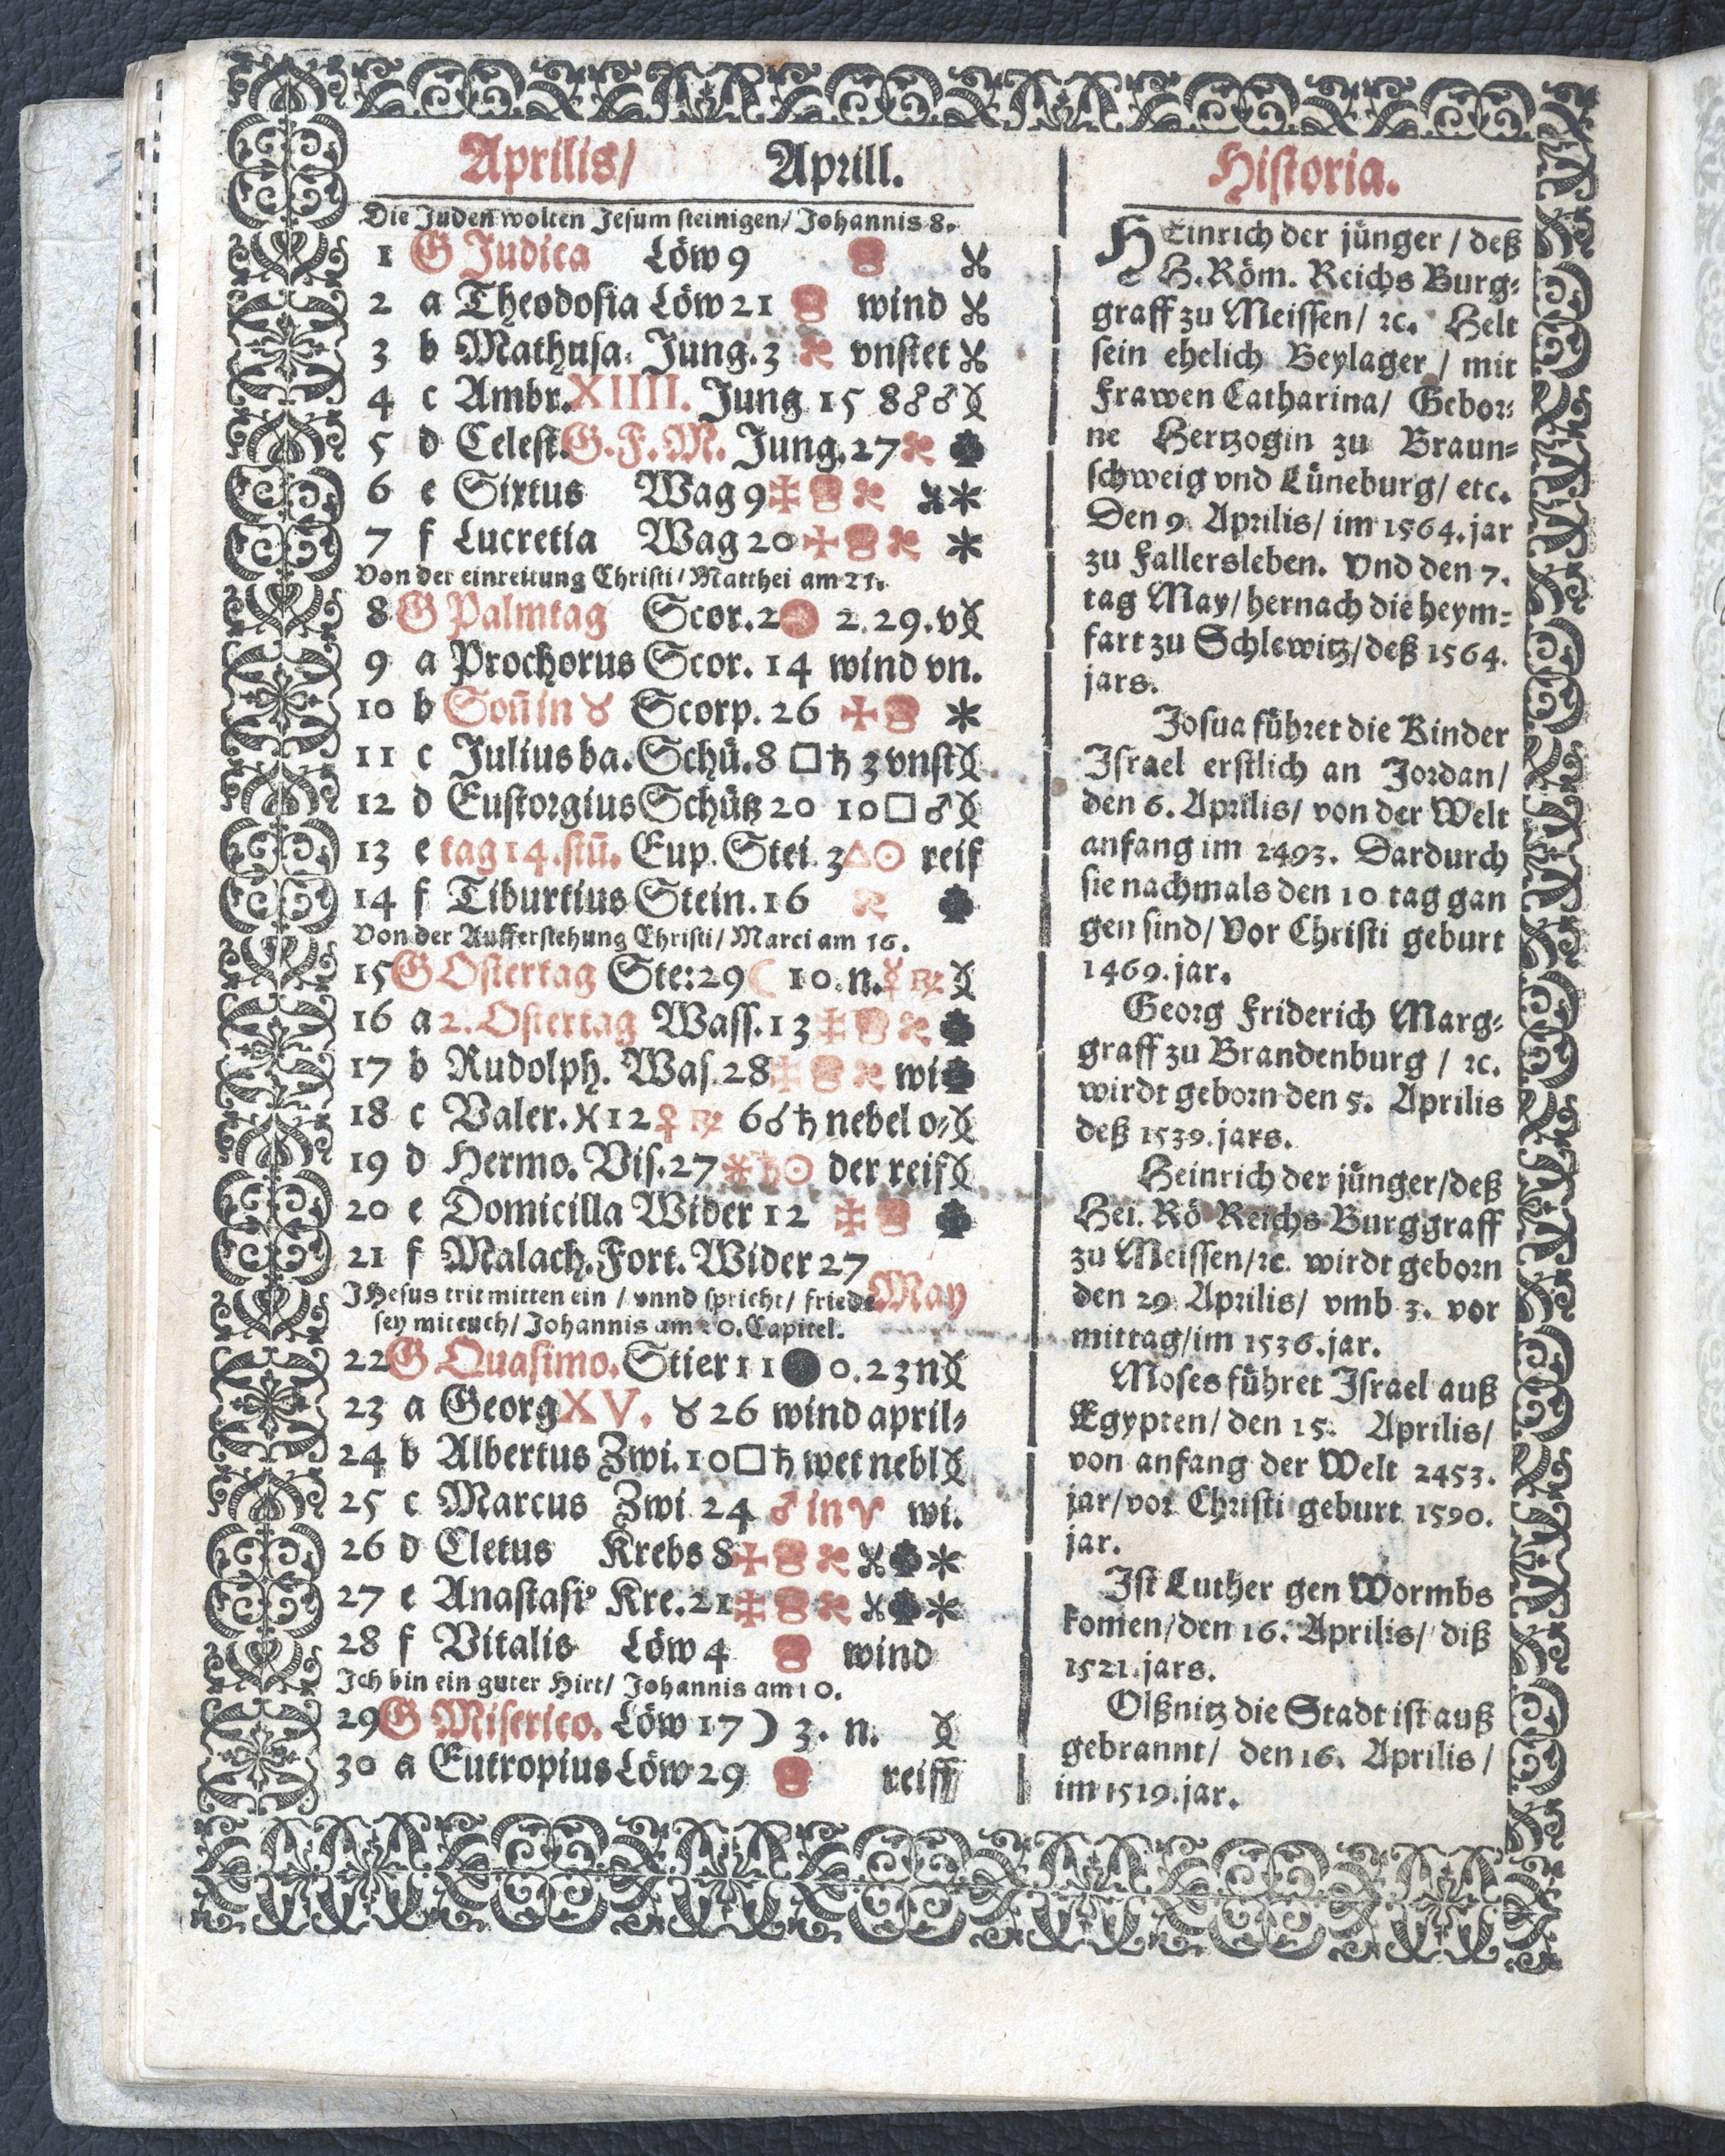 Aprilis/ Aprill.
Die Juden wolten Jesum steinigen/ Johannis 8.
1 G Judica Löw 9
2 a Theodosia Löw 21 wind
3 b Mathusa. Jung. 3 vnstet
4 c Ambr. XIIII. Jung 15 8 ☍ ♂
5 d Celest. G. F. M. Jung. 27
6 e Sixtus Wag 9
7 f Lucretia Wag 20
Von der einreitung Christi/ Matthei am 21.
8 G Palmtag Scor. 2 2. 29. v
9 a Prochorus Scor. 14 wind vn.
10 b Soñ in ♉ Scorp. 26
11 c Julius ba. Schü. 8 □ ♄ 3 vnst
12 d Eustorgius Schütz 20 10 □ ♂
13 e tag 14. stū. Eup. Stei. 3 △ ☉ reif
14 f Tiburtius Stein. 16
Von der Aufferstehung Christi/ Marci am 16.
15 G Ostertag Ste: 29 ☾ 10. n. ☿ ℞
16 a 2. Ostertag Wass. 13
17 b Rudolph. Was. 28 wi
18 c Valer. ♓ 12 ♀ ℞ 6 ☌ ♄ nebel o⸗
19 d Hermo. Vis. 27 ⚹ ♄ ☉ der reif
20 e Domicilla Wider 12
21 f Malach. Fort. Wider 27
JHesus trit mitten ein / vnnd spricht/ friede May
sey mit euch/ Johannis am 20. Capitel.
22 G Quasimo. Stier 11 ● 0. 23 n
23 a Georg XV. ♉ 26 wind april⸗
24 b Albertus Zwi. 10 □ ♄ wet nebl
25 c Marcus Zwi 24 ♂ in ♈ wi.
26 d Cletus Krebs 8
27 e Anastasiꝰ Kre. 21
28 f Vitalis Löw 4 wind
Ich bin ein guter Hirt/ Johannis am 10.
29 G Miserico. Löw 17 ☽ 3. n.
30 a Eutropius Löw 29 reiff
Historia.
HEinrich der jünger / deß
H. Röm. Reichs Burg⸗
graff zu Meissen/ ꝛc. Helt
sein ehelich Beylager / mit
Frawen Catharina/ Gebor⸗
ne Hertzogin zu Braun⸗
schweig vnd Lüneburg/ etc.
Den 9. Aprilis/ im 1564. jar
zu Fallersleben. Vnd den 7.
tag May/ hernach die heym⸗
fart zu Schlewitz/ deß 1564.
jars.
Josua führet die Kinder
Israel erstlich an Jordan/
den 6. Aprilis/ von der Welt
anfang im 2493. Dardurch
sie nachmals den 10 tag gan
gen sind/ Vor Christi geburt
1469. jar.
Georg Friderich Marg⸗
graff zu Brandenburg / ꝛc.
wirdt geborn den 5. Aprilis
deß 1539. jars.
Heinrich der jünger/ deß
Hei. Rö Reichs Burggraff
zu Meissen/ ꝛc. wirdt geborn
den 29. Aprilis/ vmb 3. vor
mittag/ im 1536. jar.
Moses führet Israel auß
Egypten/ den 15. Aprilis/
von anfang der Welt 2453.
jar/ vor Christi geburt 1590.
jar.
Ist Luther gen Wormbs
komen/ den 16. Aprilis/ diß
1521. jars.
Olßnitz die Stadt ist auß
gebrannt/ den 16. Aprilis /
im 1519. jar.